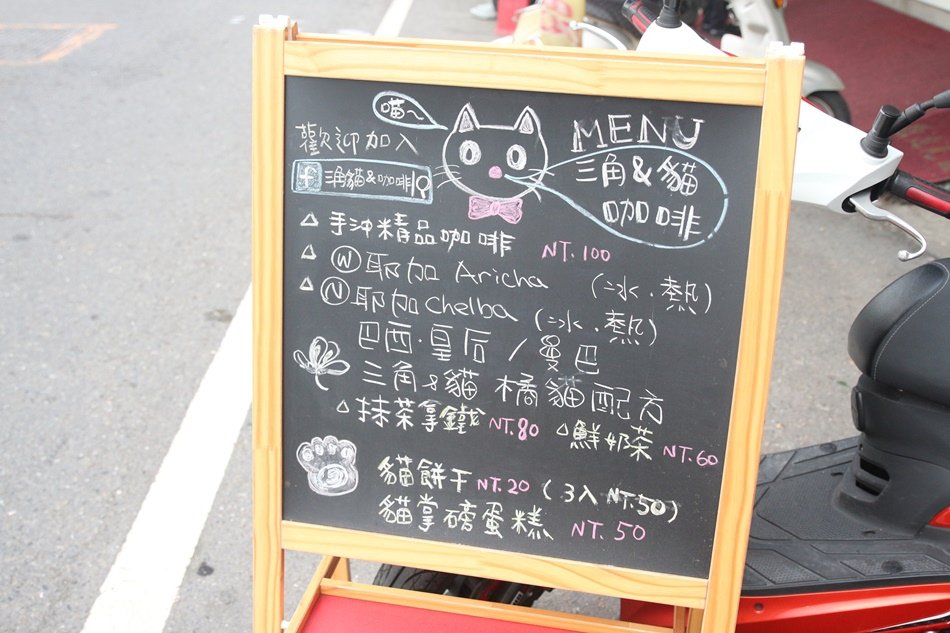 喵~
MENU
歡迎加入
f 三角貓&咖啡
三角&貓
咖啡
△ 手沖精品咖啡 NT.100
△ Ⓦ耶加 Aricha (冰.熱)
△ Ⓝ耶加 Chelba (冰.熱)
巴西.皇后/曼巴
三角&貓 橘貓配方
△抹茶拿鐵 NT.80 △鮮奶茶 NT.60
貓餅干 NT.20 (3入 NT.50)
貓掌磅蛋糕 NT.50